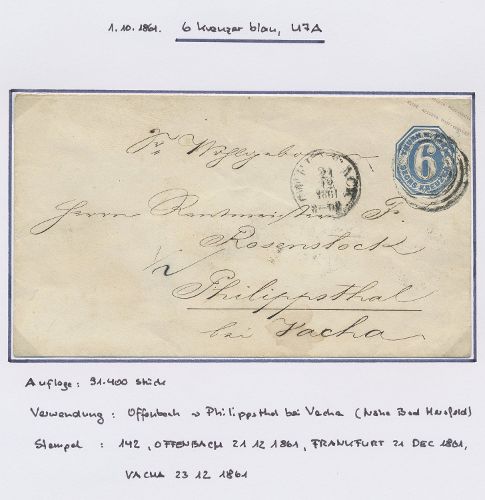 1.10.1861. 6 Kreuzer blau, U7A
Sr. Wohlgeboren
6
21
12
1861
Herrn Rentmeister F.
Rosenstock
1/2
Philippsthal
bei Vacha
Auflage: 91.400 Stück
Verwendung: Offenbach n Philippsthal bei Vacha (Nähe Bad Hersfeld)
Stempel : 142, OFFENBACH 21 12 1861, FRANKFURT 21 DEC 1861,
VACHA 23 12 1861